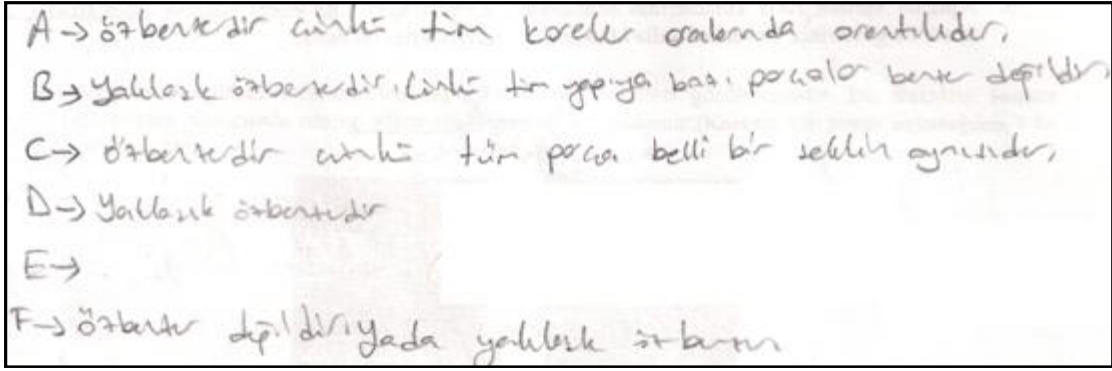 A → özbenzerdir çünkü tüm kareler aralarında orantılıdır.
B → Yaklaşık özbenzerdir. Çünkü tüm yapıya bazı parçalar benzer değildir.
C → özbenzerdir çünkü tüm parça belli bir şeklin aynısıdır.
D → Yaklaşık özbenzerdir
E →
F → özbenzer değildir yada yaklaşık özbenzer